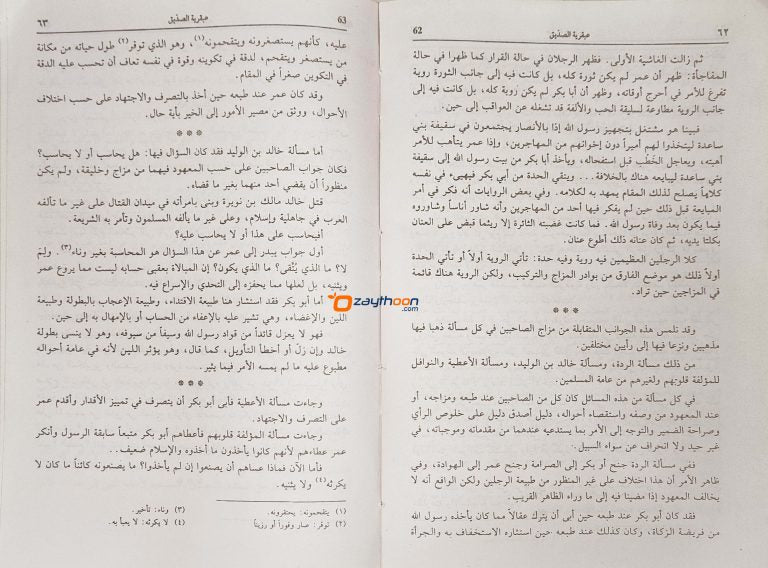 ٦٢ عبقرية الصديق 62
ثم زالت الغاشية الأولى. فظهر الرجلان في حالة القرار كما ظهرا في حالة
المفاجأة: ظهر أن عمر لم يكن ثورة كله، بل كانت فيه إلى جانب الثورة روية
تفرغ للأمر في أحرج أوقاته، وظهر أن أبا بكر لم يكن روية كله، بل كانت فيه إلى
جانب الروية مطاوعة لسليقة الحب والألفة قد تشغله عن العواقب إلى حين.
فبينا هو مشتغل بتجهيز رسول الله إذا بالأنصار يجتمعون في سقيفة بني
ساعدة ليتخذوا لهم أميراً دون إخوانهم من المهاجرين، وإذا عمر يتأهب للأمر
أهبته، ويعاجل الخَطْب قبل استفحاله، ويأخذ أبا بكر من بيت رسول الله إلى سقيفة
بني ساعدة ليبايعه هناك بالخلافة... ويتقي الحدة من أبي بكر فيهيىء في نفسه
كلاماً يصلح لذلك المقام يمهد به لكلامه. وفي بعض الروايات أنه فكر في أمر
المبايعة قبل ذلك حين لم يفكر فيها أحد من المهاجرين وأنه شاور أناساً وشاوروه
فيما يكون بعد وفاة رسول الله. فما كانت غضبته الثائرة إلا ريثما قبض على العنان
بكلتا يديه، ثم كان عنانه ذلك أطوع عنان.
كلا الرجلين العظيمين فيه روية وفيه حدة: تأتي الروية أولاً أو تأتي الحدة
أولاً ذلك هو موضع الفارق من بوادر المزاج والتركيب، ولكن الروية هناك قائمة
في المزاجين حين تراد.
* * *
وقد تلمس هذه الجوانب المتقابلة من مزاج الصاحبين في كل مسألة ذهبا فيها
مذهبين ونزعا فيها إلى رأيين مختلفين.
من ذلك مسألة الردة، ومسألة خالد بن الوليد، ومسألة الأعطية والنوافل
للمؤلفة قلوبهم ولغيرهم من عامة المسلمين.
في كل مسألة من هذه المسائل كان كل من الصاحبين عند طبعه ومزاجه، أو
عند المعهود من وصفه واستقصاء أحواله، دليل أصدق دليل على خلوص الرأي
وصراحة الضمير والتوجه إلى الأمر بما يستدعيه عندهما من مقدماته وموجباته، في
غير حيد ولا انحراف عن سواء السبيل.
ففي مسألة الردة جنح أبو بكر إلى الصرامة وجنح عمر إلى الهوادة، وفي
ظاهر الأمر أن هذا اختلاف على غير المنظور من طبيعة الرجلين ولكن الواقع أنه لا
يخالف المعهود إذا مضينا فيه إلى ما وراء الظاهر القريب.
فقد كان أبو بكر عند طبعه حين أبى أن يترك عقالاً مما كان يأخذه رسول الله
من فريضة الزكاة، وكان كذلك عند طبعه حين استثاره الاستخفاف به والجرأة
63 عبقرية الصديق ٦٣
عليه، كأنهم يستصغرونه ويتقحمونه(١)، وهو الذي توقر(٢) طول حياته من مكانة
من يستصغر ويتقحم، لدقة في تكوينه وقوة في نفسه تعاف أن تحسب عليه الدقة
في التكوين صغراً في المقام.
وقد كان عمر عند طبعه حين أخذ بالتصرف والاجتهاد على حسب اختلاف
الأحوال، ووثق من مصير الأمور إلى الخير بأية حال.
* * *
أما مسألة خالد بن الوليد فقد كان السؤال فيها: هل يحاسب أو لا يحاسب؟
فكان جواب الصاحبين على حسب المعهود فيهما من مزاج وخليقة، ولم يكن
منظوراً أن يقضي أحد منهما بغير ما قضاه.
قتل خالد مالك بن نويرة وبنى بامرأته في ميدان القتال على غير ما تألفه
العرب في جاهلية وإسلام، وعلى غير ما يألفه المسلمون وتأمر به الشريعة.
أفيحاسب على هذا أو لا يحاسب عليه؟
أول جواب يبدر إلى عمر عن هذا السؤال هو المحاسبة بغير وناء(٣). ولِمَ
لا؟ ما الذي يُتَّقى؟ ما الذي يكون؟ إن المبالاة بعقبى حسابه ليست مما يروع عمر
ويثنيه، بل لعلها مما يحفزه إلى التحدي والإسراع فيه.
أما أبو بكر فقد استشار هنا طبيعة الاقتداء، وطبيعة الإعجاب بالبطولة وطبيعة
اللين والإغضاء، وهي تشير عليه بالإعفاء من الحساب أو بالإمهال به إلى حين.
فهو لا يعزل قائداً من قواد رسول الله وسيفاً من سيوفه، وهو لا ينسى بطولة
خالد وإن زلّ أو أخطأ التأويل، كما قال، وهو يؤثر اللين لأنه في عامة أحواله
مطبوع عليه ما لم يمسه الأمر فيما يثير.
* * *
وجاءت مسألة الأعطية فأبى أبو بكر أن يتصرف في تمييز الأقدار وأقدم عمر
على التصرف والاجتهاد.
وجاءت مسألة المؤلفة قلوبهم فأعطاهم أبو بكر متبعاً سابقة الرسول وأنكر
عمر عطاءهم لأنهم كانوا يأخذون ما أخذوه والإسلام ضعيف..
فأما الآن فماذا عساهم أن يصنعوا إن لم يأخذوا؟ ما يصنعونه كائناً ما كان لا
يكرثه(٤) ولا يثنيه.
(١) يتقحمونه: يحتقرونه. (٣) وناء: تأخير.
(٢) توقر: صار وقوراً أو رزيناً (٤) لا يكرثه: لا يعبأ به.
zaythoon.com